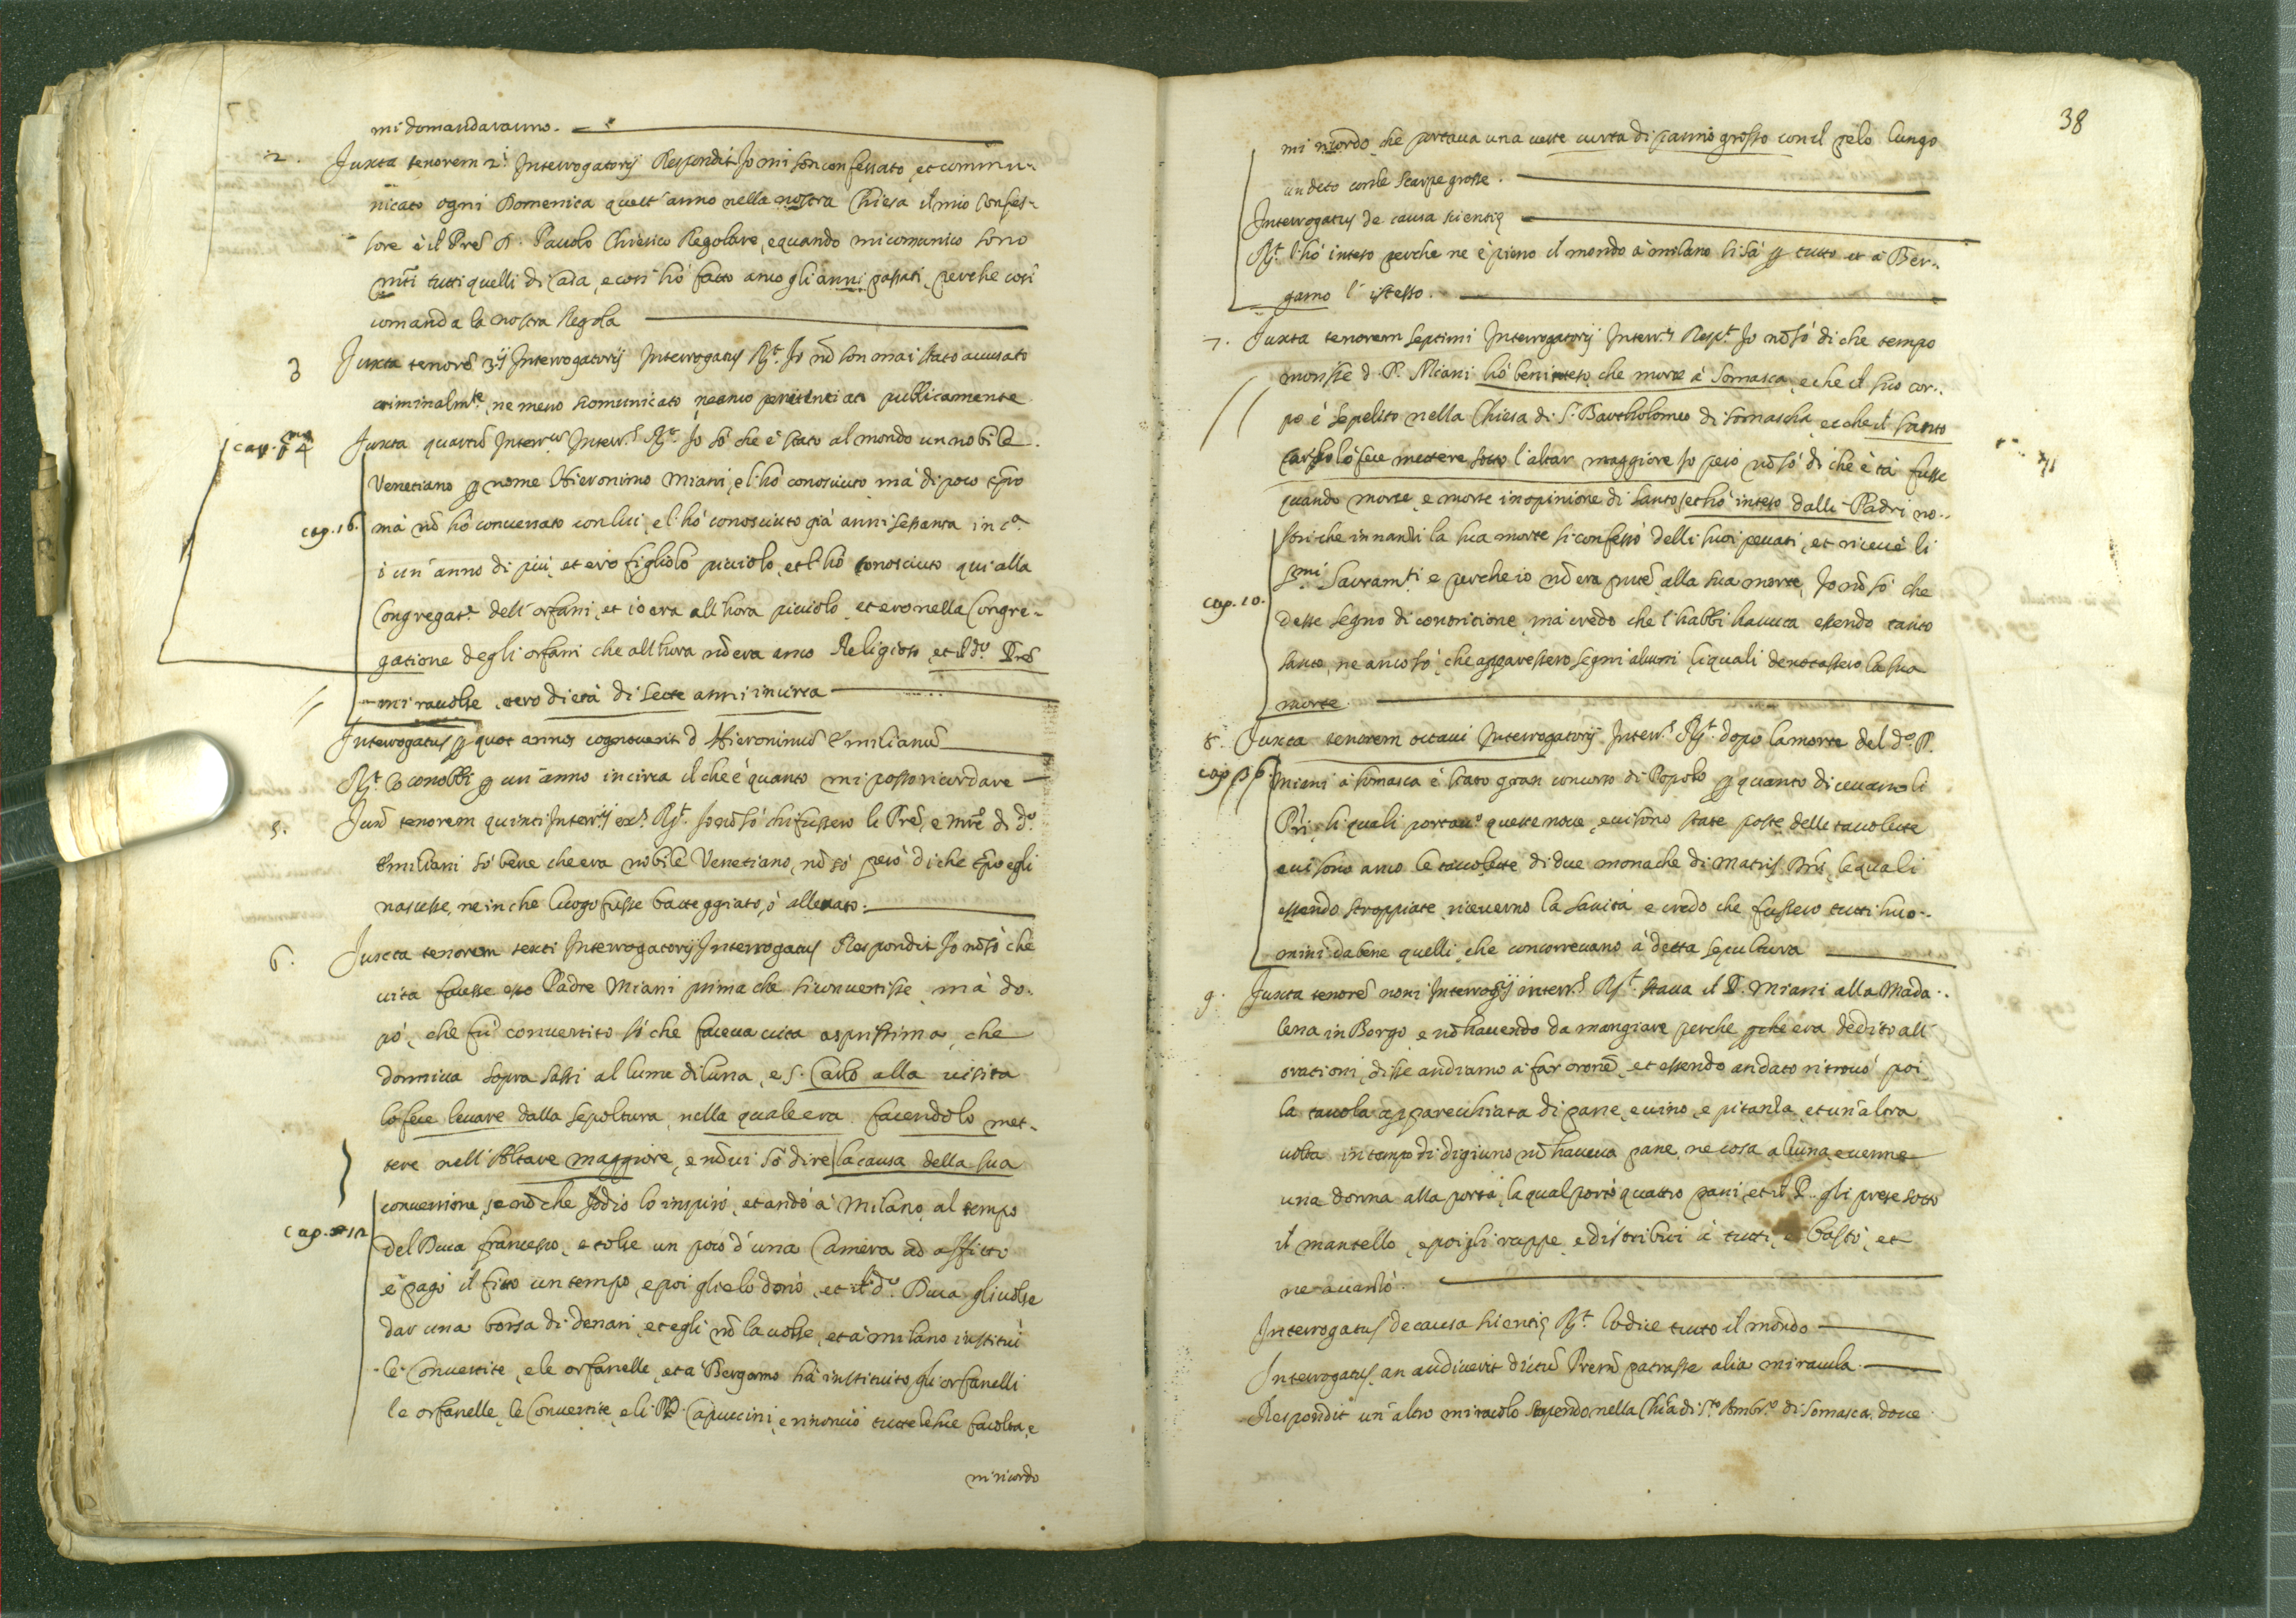 mi domandaranno.
2. Juxta tenorem 2.i Interrogatorij Respondit Io mi son confessato, et commu-
nicato ogni Domenica quest'anno nella nostra Chiesa il mio Confes-
sore è il Prẽ D. Pauolo Chierico Regolare, e quando mi comunico sono
pñti tutti quelli di Casa, e cosi hò fatto anco gli anni passati, perche cosi
comanda la nostra Regola
3 Juxta tenorẽ 3ij Interrogatorij Interrogatus Rṣ.t Io nõ son mai stato accusato
criminalm.te, ne meno scomunicato, ne anco penitentiato publicamente.
cap. 4 Juxta quartũ Interr.m Interr.s Rṣ.t Io sò che è stato al mondo un nobile
Venetiano ꝑ nome Hieronimo Miani, e l'hò conosciuto, mà di poco tẽpo
cap. 16. mà nõ hò conuersato con lui, e l'hò conosciuto già anni sessanta in c.a
ò un'anno di più, et ero figliolo picciolo, et l'hò conosciuto qui alla
Congregat.e dell'orfani, et io era all'hora picciolo, et ero nella Congre-
gatione degli orfani che all'hora nõ era anco Religioso, et il d.o Prẽ
mi racolse, et ero di età di sette anni incirca
Interrogatus ꝑ quot annos cognouerit d. Hieronimũ Emilianũ
Rṣ.t lo conobbi ꝑ un'anno incirca il che è quanto mi posso ricordare
5. Jux.a tenorem quinti Interr.ij ex.s Rṣ.t Io nõ sò chi fussero li Prẽ, e Mrẽ di d.o
Emiliani sò bene che era nobile Venetiano, nõ sò però di che tẽpo egli
nascesse, ne in che luogo fusse batteggiato, ò alleuato.
6. Juxta tenorem sexti Interrogatorij Interrogatus Respondit Io nõ sò che
uita facesse esso Padre Miani prima che si conuertisse, mà do-
pò, che fù conuertito sò che faceua uita asprissima, che
dormiua sopra sassi al lume di luna, e S. Carlo alla uisita
lo fece leuare dalla sepoltura, nella quale era facendolo met-
tere nell'Altare maggiore, e nõ ui sò dire la causa della sua
conuersione, se nõ che Iddio lo inspirò, et andò à Milano al tempo
cap. 12 del Duca Francesco, e tolse un poco d'una Camera ad affitto
e pagò il fitto un tempo, e poi glielo donò, et il d.o Duca gli uolse
dar una borsa di denari, et egli nõ la uolse, et à Milano institui
le Conuertite, e le orfanelle, et à Bergamo hà instituito gli orfanelli
le orfanelle, le Conuertite, e li PP. Capuccini, e rinonciò tutte le sue facoltà, e
mi ricordo
38
mi ricordo che portaua una ueste curta di panno grosso con il pelo lungo
un deto con le scarpe grosse.
Interrogatus de causa scientię
Rṣ.t l'hò inteso perche ne è pieno il mondo à Milano si sà ꝑ tutto et à Ber-
gamo l'istesso.
7. Juxta tenorem septimi Interrogatorij Interr.s Resp.t Io nõ sò di che tempo
morisse d. P. Miani hò ben inteso, che morse à Somasca, e che il suo cor-
po è sepelito nella Chiesa di S. Bartholomeo di Somascha, et che il santo
Carlo lo fece mettere sotto l'altar maggiore Io però nõ sò di che età fusse
quando morse, e morse in opinione di santo, et hò inteso dalli Padri no-
stri che innanzi la sua morte si confessò delli suoi peccati, et riceuè li
S.mi Sacram.ti e perche io nõ era pñte alla sua morte, Io nõ sò che
cap. 10. desse segno di contritione, mà credo che l'habbi hauuta essendo tanto
santo, ne anco sò, che apparessero segni alcuni li quali denotassero la sua
morte.
8. Juxta tenorem octaui Interrogatorij Interr.s Rṣ.t dopò la morte del d.o P.
cap. Miani à Somasca è stato gran concorso di Popolo ꝑ quanto diceuano li
Pri, li quali portau.o queste noue, e ui sono state poste delle tauolette
e ui sono anco le tauolette di due monache di Matris Dñi, le quali
essendo stroppiate, riceuerno la sanità e credo che fussero tutti huo-
mini da bene quelli, che concorreuano à detta sepultura
9. Juxta tenorẽ noni Interrog.ij interr.s Rṣ.t staua il P. Miani alla Mada-
lena in Borgo, e nõ hauendo da mangiare perche era dedito all'
orationi, disse andiamo à far orõne, et essendo andato ritrouò poi
la tauola apparecchiata di pane, e uino, e pitanza, et un'altra
uolta in tempo di digiuno nõ haueua pane, ne cosa alcuna, e uenne
una donna alla porta, la qual portò quattro pani, et il P. gli prese sotto
il mantello, e poi gli rappe, e distribui à tutti, e bastò, et
ne auanzò.
Interrogatus de causa scientię Rṣ.t lo dice tutto il mondo
Interrogatus, an audiuerit dictũ Prem̃ patrasse alia miracula.
Respondit un'altro miracolo stupendo nella Chĩa di S.to Ambr.o di Somasca, doue